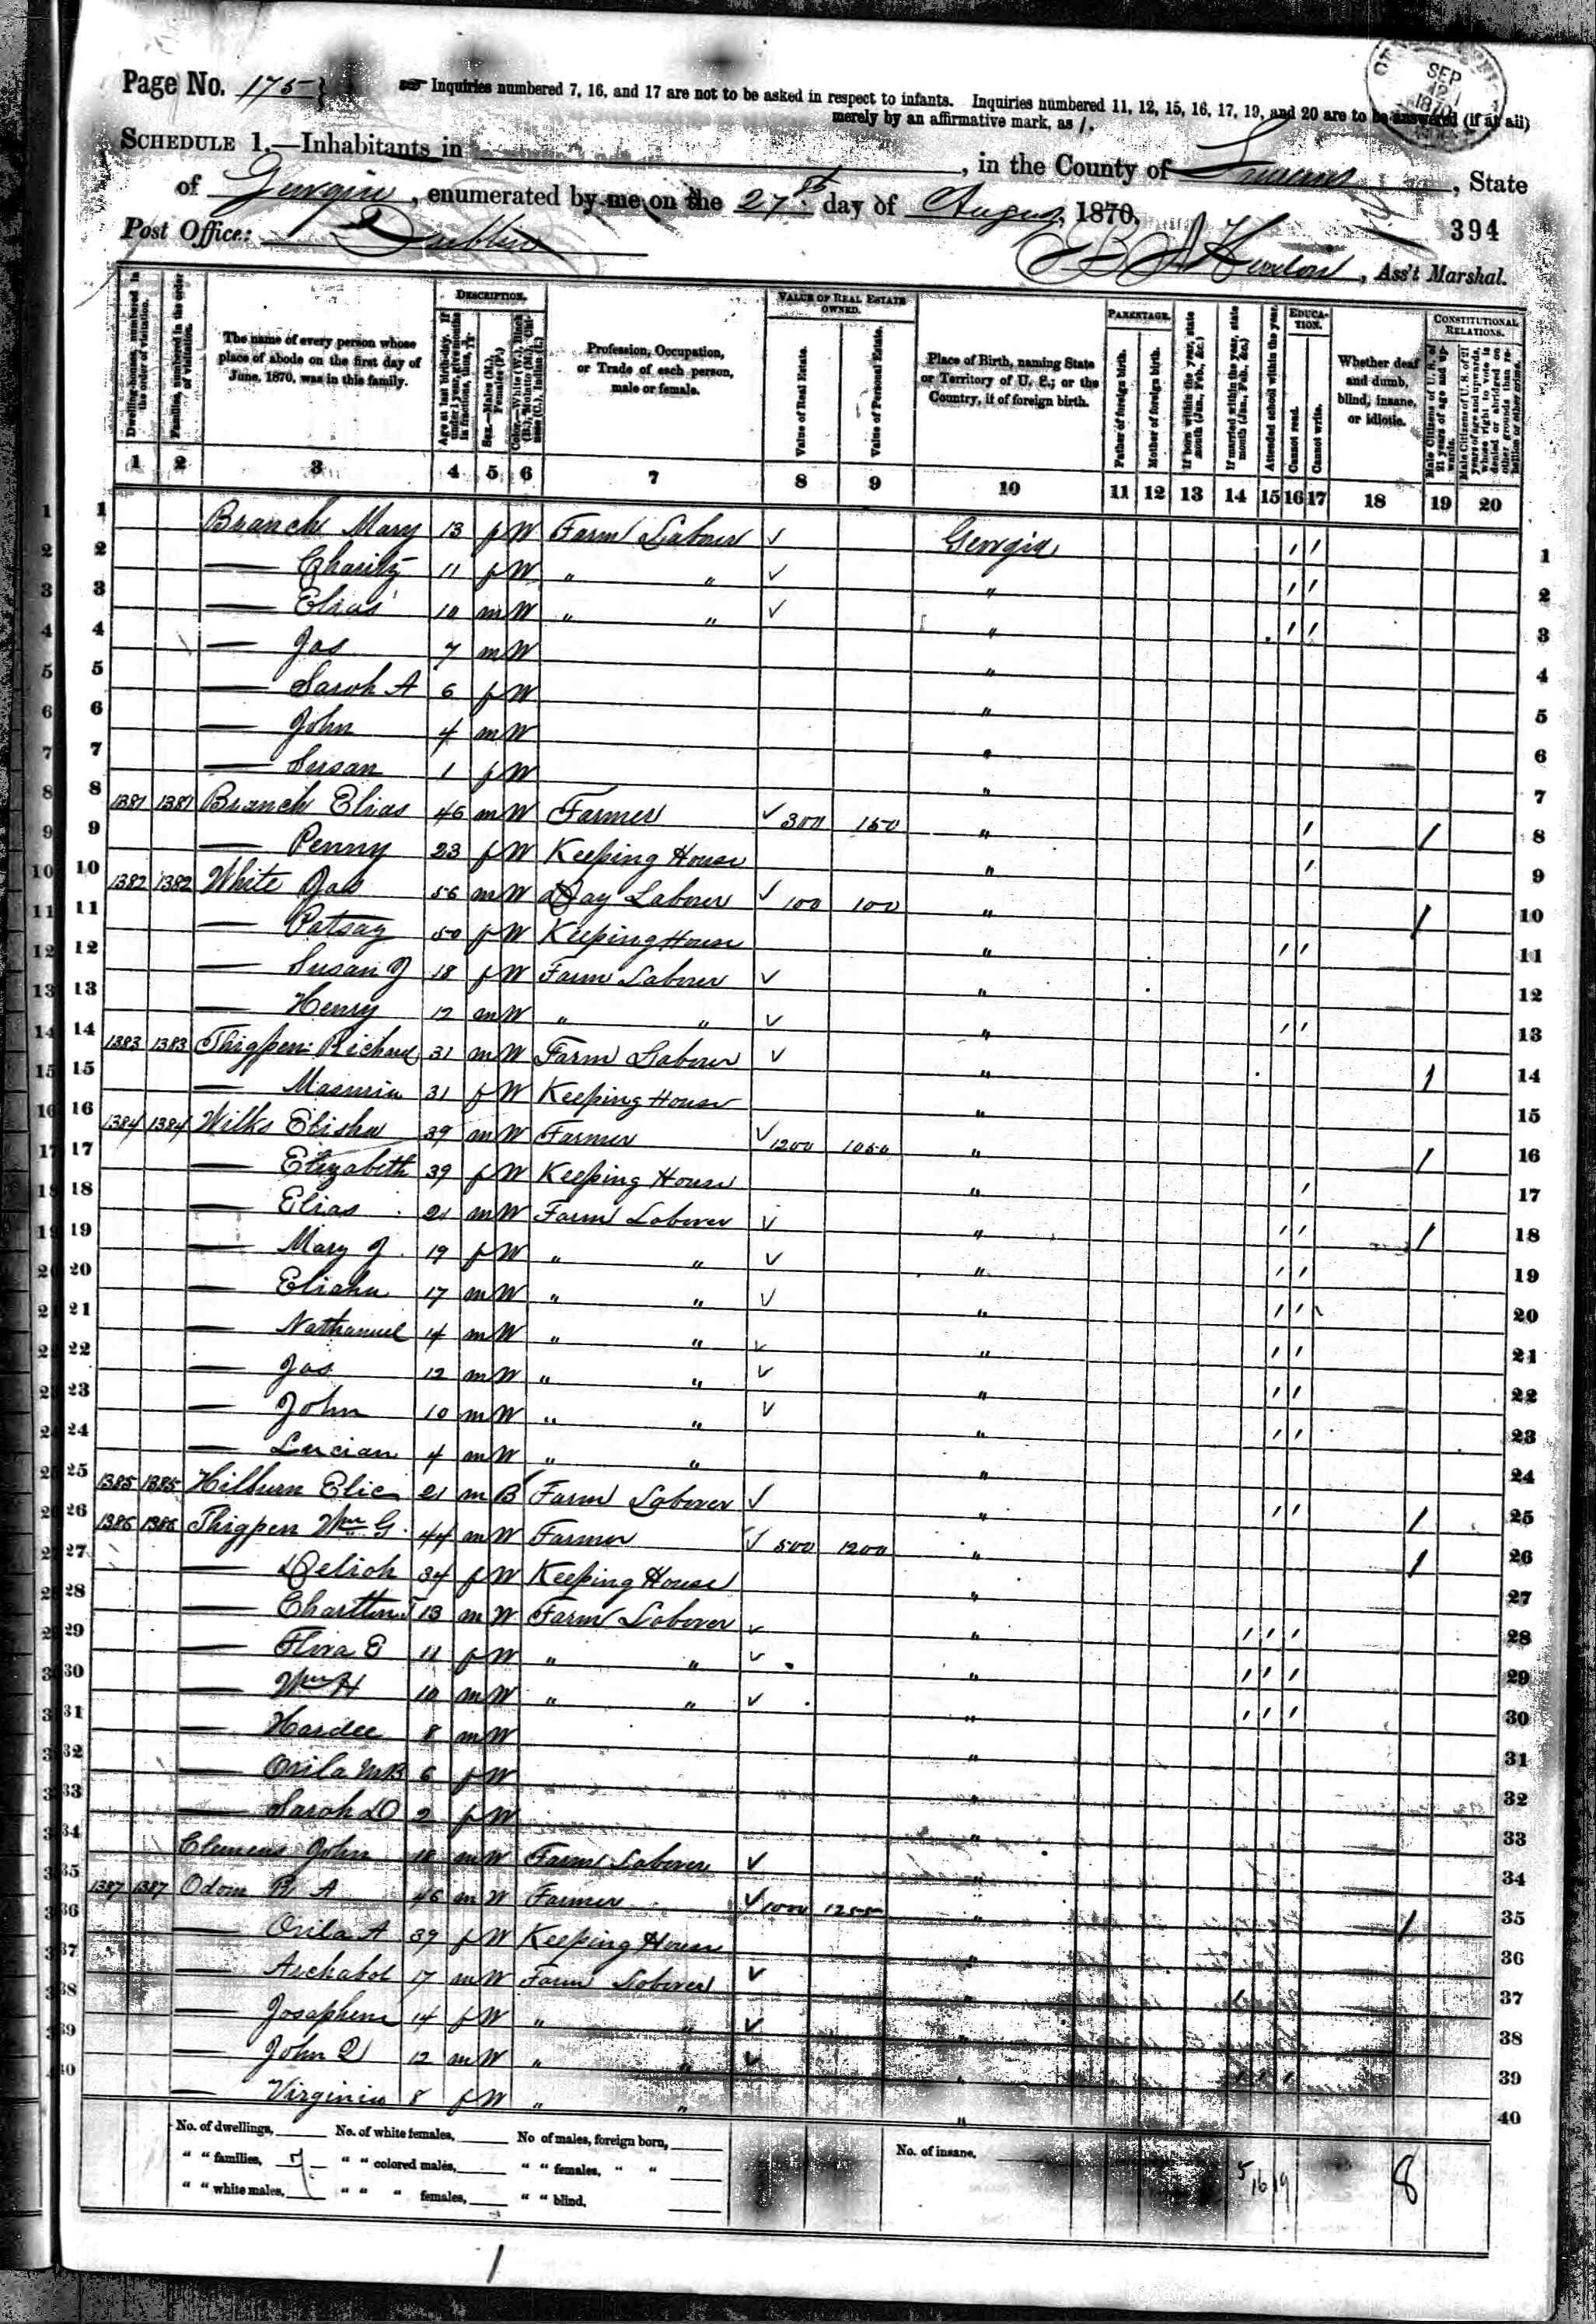 Page No. 175
Inquiries numbered 7, 16, and 17 are not to be asked in respect to infants. Inquiries numbered 11, 12, 15, 16, 17, 19, and 20 are to be answered (if at all)
merely by an affirmative mark, as /.
SEP
1870
SCHEDULE 1.—Inhabitants in , in the County of , State
of Georgia, enumerated by me on the 27th day of August, 1870.
394
Post Office: Dublin
, Ass't Marshal.
Dwelling-houses, numbered in the order of visitation.
Families, numbered in the order of visitation.
The name of every person whose place of abode on the first day of June, 1870, was in this family.
DESCRIPTION.
Age at last birth-day. If under 1 year, give months in fractions, thus,
Sex.—Males (M.), Females (F.)
Color.—White (W.), Black (B.), Mulatto (M.), Chinese (C.), Indian (I.)
Profession, Occupation, or Trade of each person, male or female.
VALUE OF REAL ESTATE OWNED.
Value of Real Estate.
Value of Personal Estate.
Place of Birth, naming State or Territory of U. S.; or the Country, if of foreign birth.
PARENTAGE.
Father of foreign birth.
Mother of foreign birth.
If born within the year, state month (Jan., Feb., &c.)
If married within the year, state month (Jan., Feb., &c.)
Attended school within the year.
EDUCATION.
Cannot read.
Cannot write.
Whether deaf and dumb, blind, insane, or idiotic.
CONSTITUTIONAL RELATIONS.
Male Citizens of U. S. of 21 years of age and upwards.
Male Citizens of U. S. of 21 years of age and upwards, whose right to vote is denied or abridged on other grounds than rebellion or other crime.
1 2 3 4 5 6 7 8 9 10 11 12 13 14 15 16 17 18 19 20
1 Branch Mary 13 f W Farm Laborer ✓ Georgia / / 1
2 — Charity 11 f W " " ✓ " / / 2
3 — Elias 10 m W " " ✓ " / / 3
4 — Jas 7 m W " 4
5 — Sarah A 6 f W " 5
6 — John 4 m W " 6
7 — Susan 1 f W " 7
8 1381 1381 Branch Elias 46 m W Farmer ✓ 300 150 " / / 8
9 — Penny 23 f W Keeping House " / 9
10 1382 1382 White Jas 56 m W Day Laborer ✓ 100 100 " / 10
11 — Patsay 50 f W Keeping House " / / 11
12 — Susan J 18 f W Farm Laborer ✓ " 12
13 — Henry 12 m W " " ✓ " / / 13
14 1383 1383 Thigpen Richard 31 m W Farm Laborer ✓ " / 14
15 — 31 f W Keeping House " 15
16 1384 1384 Wilks Elisha 39 m W Farmer ✓ 1200 1050 " / 16
17 — Elizabeth 39 f W Keeping House " / 17
18 — Elias 21 m W Farm Laborer ✓ " / / / 18
19 — Mary J. 19 f W " " ✓ " / / 19
20 — 17 m W " " ✓ " / / 20
21 — Nathanuel 14 m W " " ✓ " / / 21
22 — Jas 12 m W " " ✓ " / / 22
23 — John 10 m W " " ✓ " / / 23
24 — Lucian 4 m W " " " 24
25 1385 1385 Hilburn 21 m B Farm Laborer ✓ " / / / 25
26 1386 1386 Thigpen Wm G. 44 m W Farmer ✓ 500 1200 " / 26
27 — 34 f W Keeping House " 27
28 — 13 m W Farm Laborer ✓ " / / / 28
29 — E 11 f W " " ✓ " / / / 29
30 — Wm H 10 m W " " ✓ " / / / 30
31 — Hardee 8 m W " 31
32 — Orila 6 f W " 32
33 — Sarah D 2 f W " 33
34 Clemens John 18 m W Farm Laborer ✓ " 34
35 1387 1387 Odom R A 46 m W Farmer ✓ 1000 " / 35
36 — Orila A 39 f W Keeping House " 36
37 — Archabol 17 m W Farm Laborer ✓ " / 37
38 — Josephine 14 f W " " ✓ " 38
39 — John 12 m W " " ✓ " / / / 39
40 — Virginia 8 f W " " " 40
No. of dwellings, No. of white females, No of males, foreign born, No. of insane,
" " families, 7 " " colored males, " " females, " "
" " white males, " " " females, " " blind,
5 16 19 8